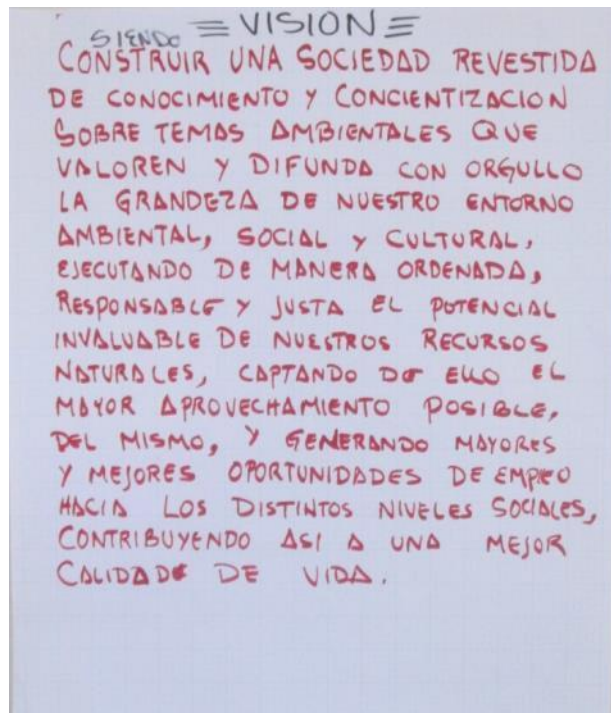 VISION
SIENDO
CONSTRUIR UNA SOCIEDAD REVESTIDA
DE CONOCIMIENTO Y CONCIENTIZACION
SOBRE TEMAS AMBIENTALES QUE
VALOREN Y DIFUNDA CON ORGULLO
LA GRANDEZA DE NUESTRO ENTORNO
AMBIENTAL, SOCIAL Y CULTURAL,
EJECUTANDO DE MANERA ORDENADA,
RESPONSABLE Y JUSTA EL POTENCIAL
INVALUABLE DE NUESTROS RECURSOS
NATURALES, CAPTANDO DE ELLO EL
MAYOR APROVECHAMIENTO POSIBLE,
DEL MISMO, Y GENERANDO MAYORES
Y MEJORES OPORTUNIDADES DE EMPLEO
HACIA LOS DISTINTOS NIVELES SOCIALES,
CONTRIBUYENDO ASI A UNA MEJOR
CALIDAD DE VIDA.